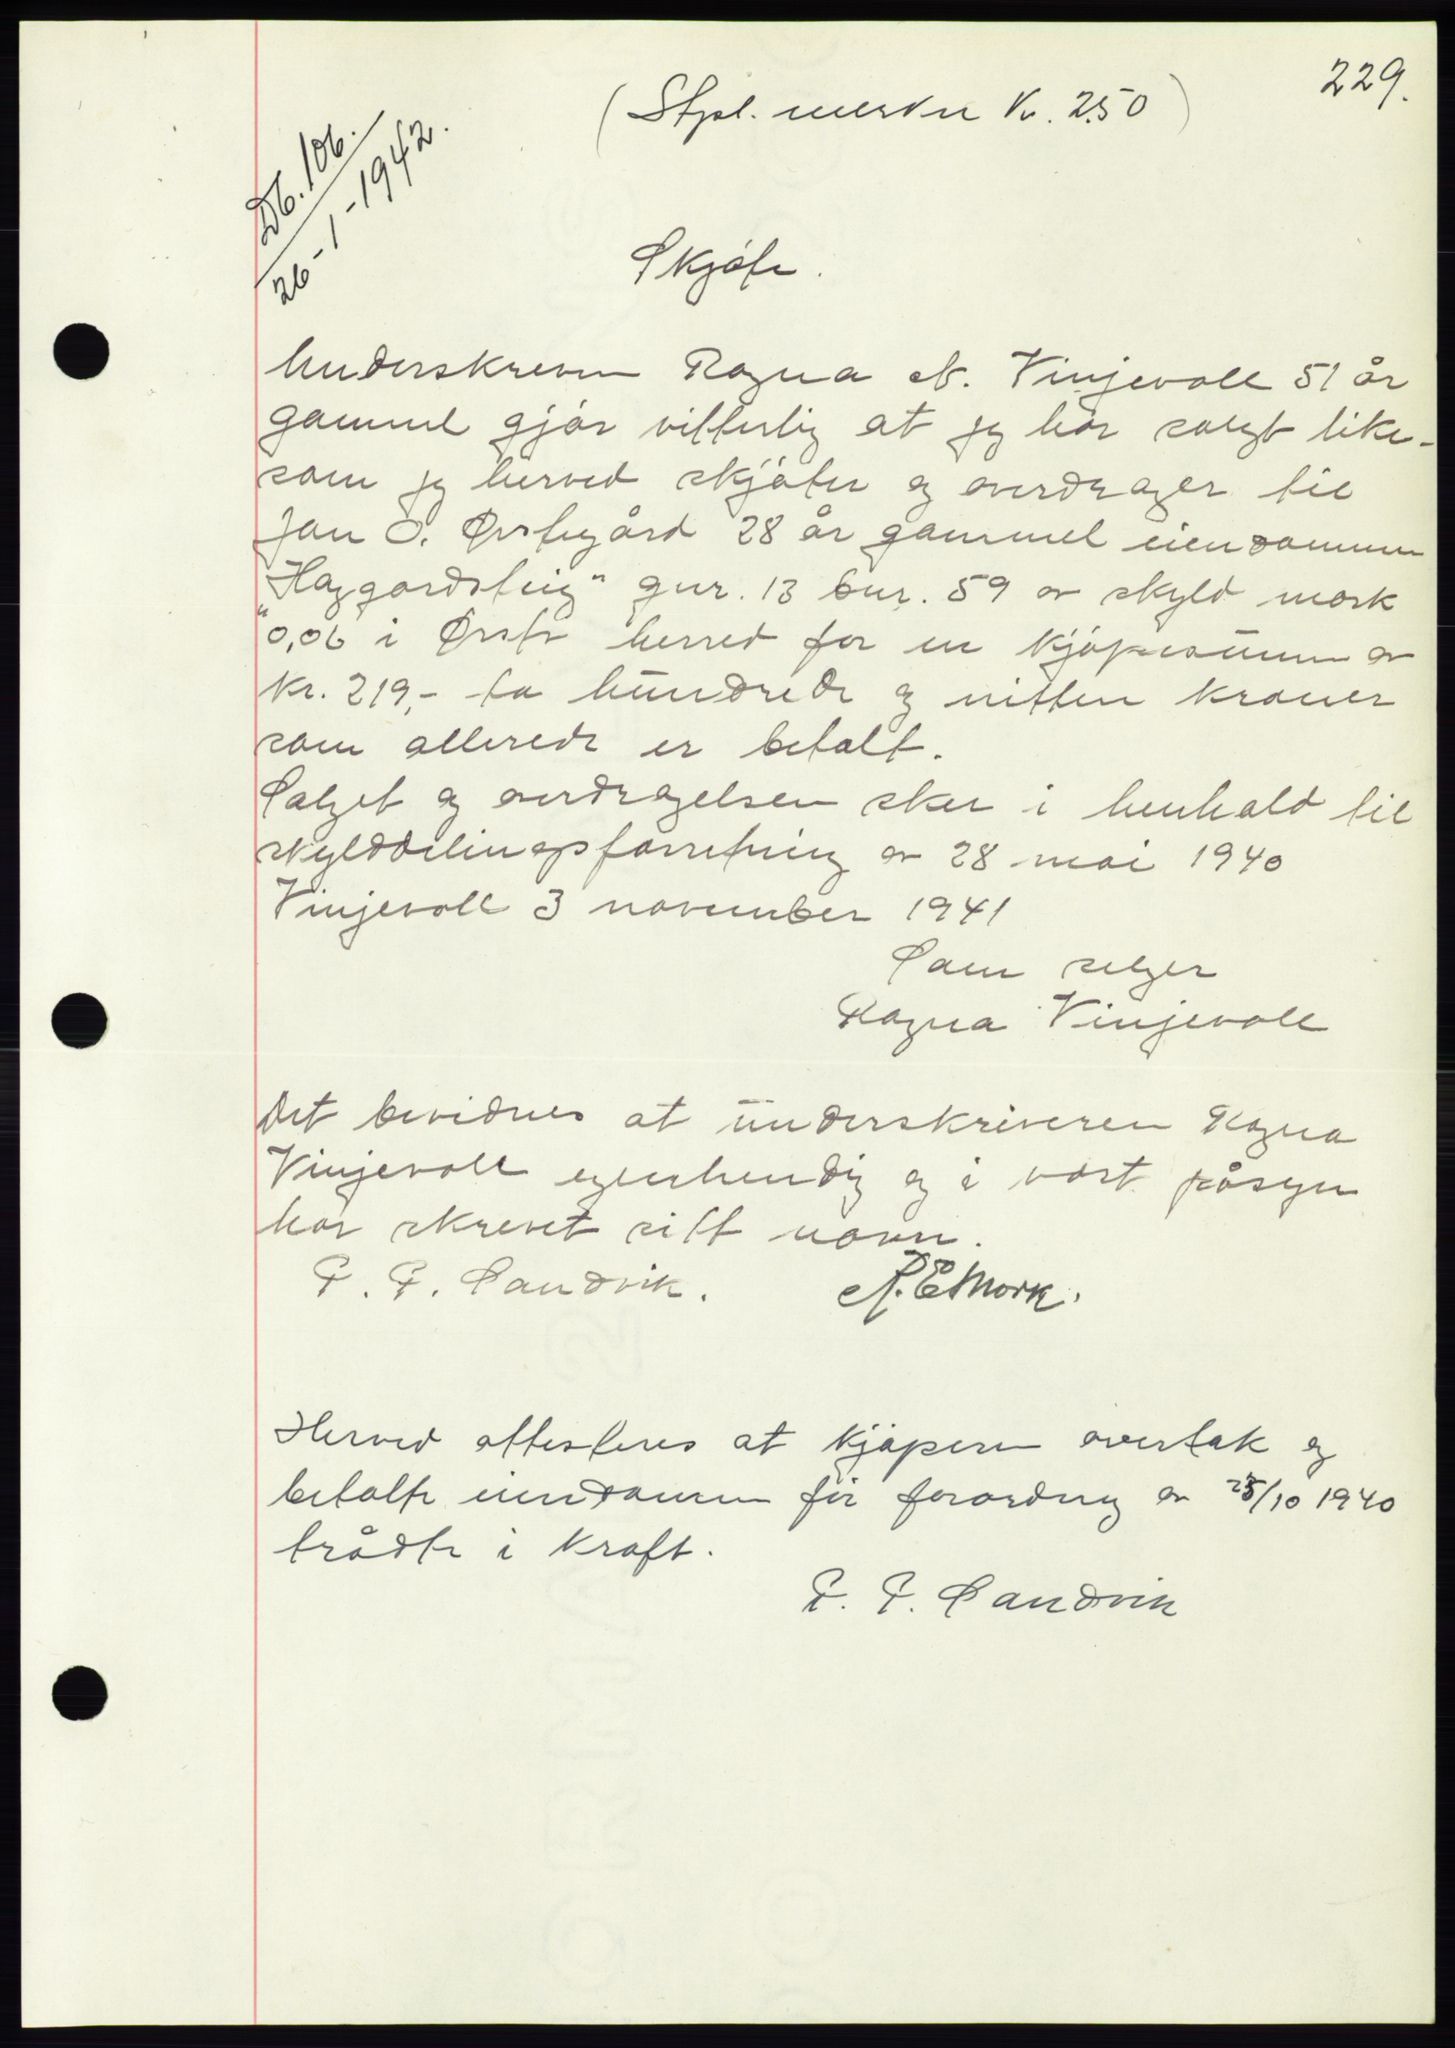 229.
(Stpl. merke Kr. 2.50)
Db. 106.
26-1-1942.
Skjøte.
Underskrevne Ragna N. Vinjevoll 51 år
gammel gjør vitterlig at jeg har solgt like-
som jeg herved skjøter og overdrager til
Jon O. Ørstegård 28 år gammel eiendommen
"Haggardsteig" gnr. 13 bnr. 59 av skyld mark
0,06 i Ørsta herred for en kjøpesum av
Kr. 219,- to hundrede og nitten kroner
som allerede er betalt.
Salget og overdragelsen sker i henhold til
skylddelingsforretning av 28 mai 1940
Vinjevoll 3 november 1941
Som selger
Ragna Vinjevoll
Det bevidnes at underskriveren Ragna
Vinjevoll egenhendig og i vort påsyn
har skrevet sitt navn.
P. P. Sandvik. A. E Mork.
Herved attesteres at kjøperen overtok og
betalte eiendommen før forordning av 25/10 1940
trådte i kraft.
P. P. Sandvik